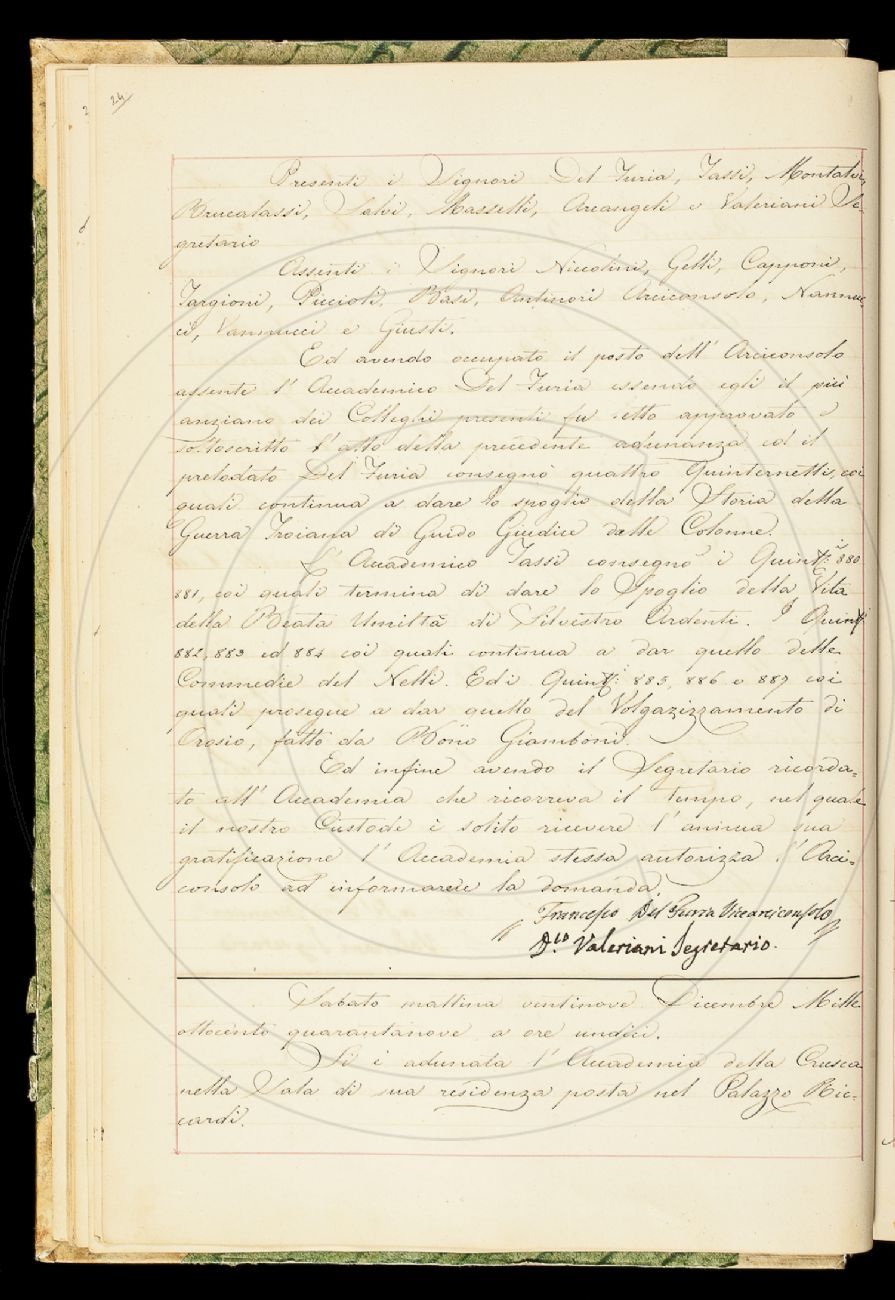 24
Presenti i Signori Del Furia, Tassi, Montalvi,
Brucalassi, Salvi, Masselli, Arcangeli e Valeriani Se-
gretario
Assenti i Signori Niccolini, Gelli, Capponi,
Targioni, Piccioli, Basi, Antinori Arciconsolo, Nannuc-
ci, Vannucci e Giusti.
Ed avendo occupato il posto dell' Arciconsolo
assente l' Accademico Del Furia essendo egli il più
anziano dei Colleghi presenti fu letto approvato e
sottoscritto l' atto della precedente adunanza ed il
prelodato Del Furia consegnò quattro Quinternetti, coi
quali continua a dare lo spoglio della Storia della
Guerra Troiana di Guido Giudice dalle Colonne.
L' Accademico Tassi consegnò i Quint.i 880
881, coi quali termina di dare lo Spoglio della Vita
della Beata Umiltà di Silvestro Ardenti. I Quint.i
882, 883 ed 884 coi quali continua a dar quello delle
Commedie del Nelli. Ed i Quint.i 885, 886 e 887 coi
quali prosegue a dar quello del Volgazizzamento di
Orosio, fatto da Bono Giamboni.
Ed infine avendo il Segretario ricorda-
to all' Accademia che ricorreva il tempo, nel quale
il nostro Custode è solito ricevere l' annua sua
gratificazione l' Accademia stessa autorizza l' Arci-
consolo ad informarne la domanda.
Francesco Del Furia Vicearciconsolo
D.co Valeriani Segretario.
Sabato mattina ventinove Dicembre Mille
ottocento quarantanove a ore undici.
Si è adunata l' Accademia della Crusca
nella Sala di sua residenza posta nel Palazzo Ric-
cardi.